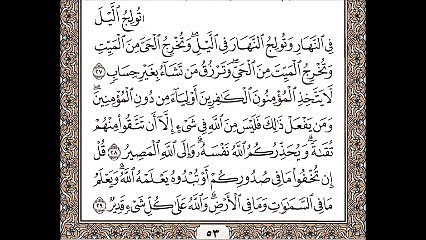 تُولِجُ ٱلَّيۡلَ
فِي ٱلنَّهَارِ وَتُولِجُ ٱلنَّهَارَ فِي ٱلَّيۡلِۖ وَتُخۡرِجُ ٱلۡحَيَّ مِنَ ٱلۡمَيِّتِ
وَتُخۡرِجُ ٱلۡمَيِّتَ مِنَ ٱلۡحَيِّۖ وَتَرۡزُقُ مَن تَشَآءُ بِغَيۡرِ حِسَابٖ ٢٧
لَّا يَتَّخِذِ ٱلۡمُؤۡمِنُونَ ٱلۡكَٰفِرِينَ أَوۡلِيَآءَ مِن دُونِ ٱلۡمُؤۡمِنِينَۖ
وَمَن يَفۡعَلۡ ذَٰلِكَ فَلَيۡسَ مِنَ ٱللَّهِ فِي شَيۡءٍ إِلَّآ أَن تَتَّقُواْ مِنۡهُمۡ
تُقَىٰةٗۗ وَيُحَذِّرُكُمُ ٱللَّهُ نَفۡسَهُۥۗ وَإِلَى ٱللَّهِ ٱلۡمَصِيرُ ٢٨ قُلۡ
إِن تُخۡفُواْ مَا فِي صُدُورِكُمۡ أَوۡ تُبۡدُوهُ يَعۡلَمۡهُ ٱللَّهُۗ وَيَعۡلَمُ
مَا فِي ٱلسَّمَٰوَٰتِ وَمَا فِي ٱلۡأَرۡضِۗ وَٱللَّهُ عَلَىٰ كُلِّ شَيۡءٖ قَدِيرٞ ٢٩
٥٣